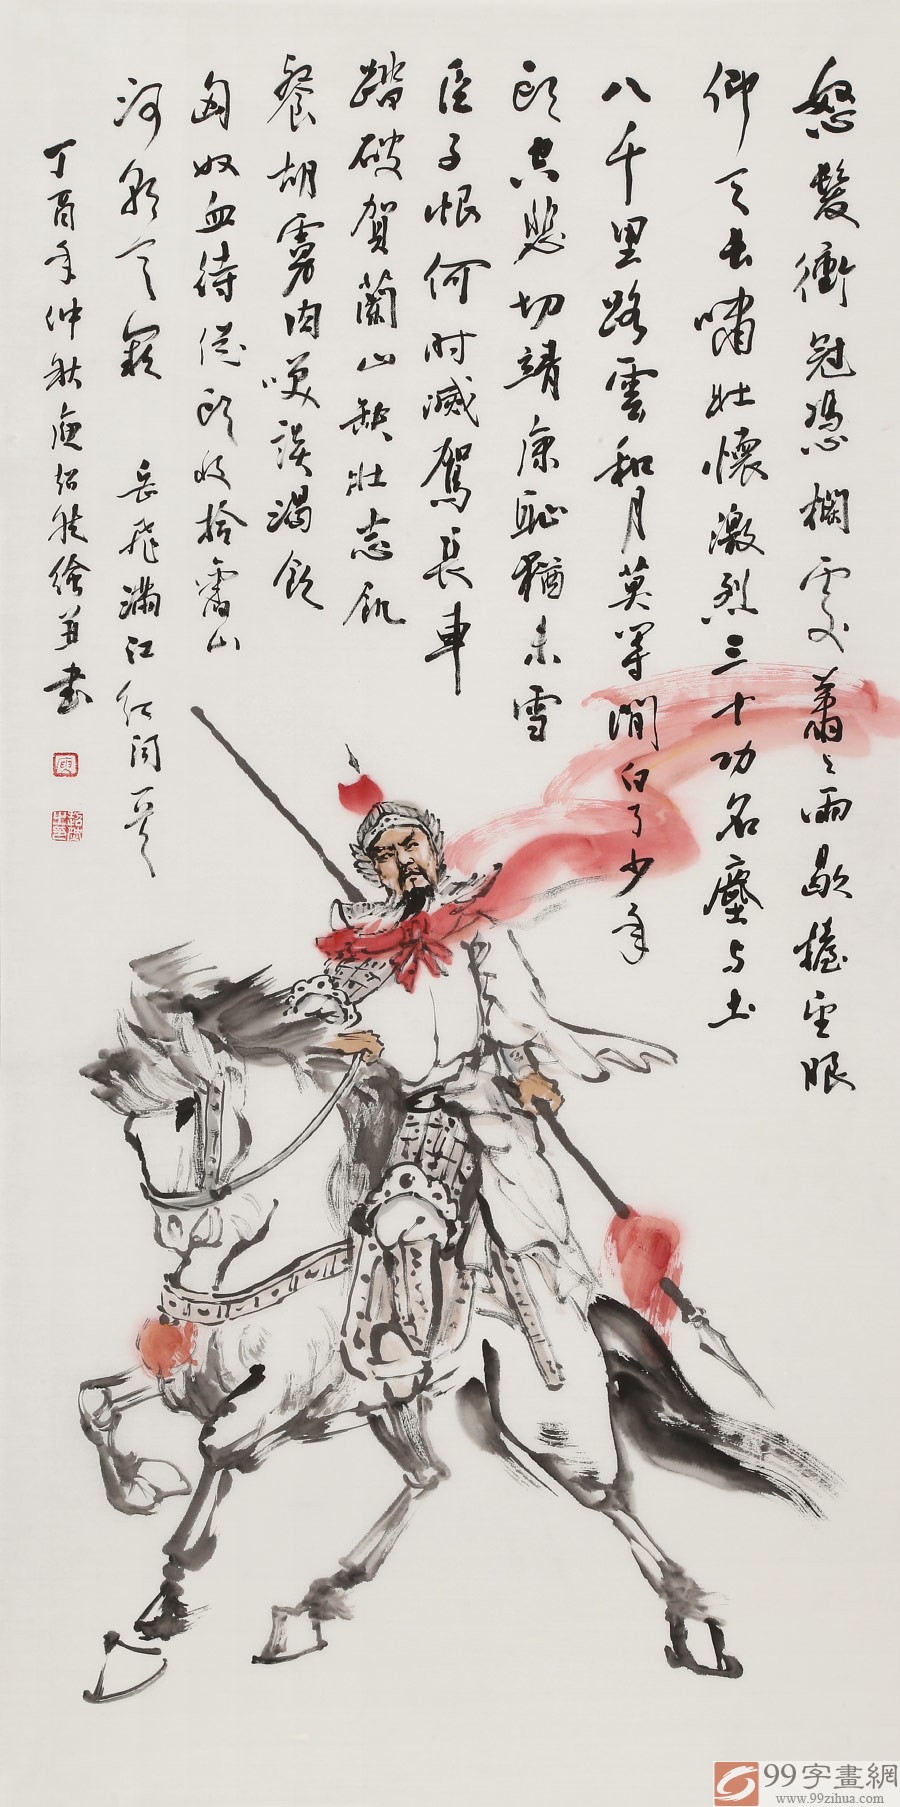 怒髮衝冠憑欄處蕭〻雨歇擡望眼
仰天長嘯壯懷激烈三十功名塵与土
八千里路雲和月莫等閒白了少年
頭空悲切靖康恥猶未雪
臣子恨何时滅駕長車
踏破賀蘭山缺壯志飢
餐胡虜肉笑談渴飲
匈奴血待從頭收拾舊山
河朝天闕 岳飛滿江红词一首
丁酉年仲秋 绘並书
99字畫網
www.99zihua.com